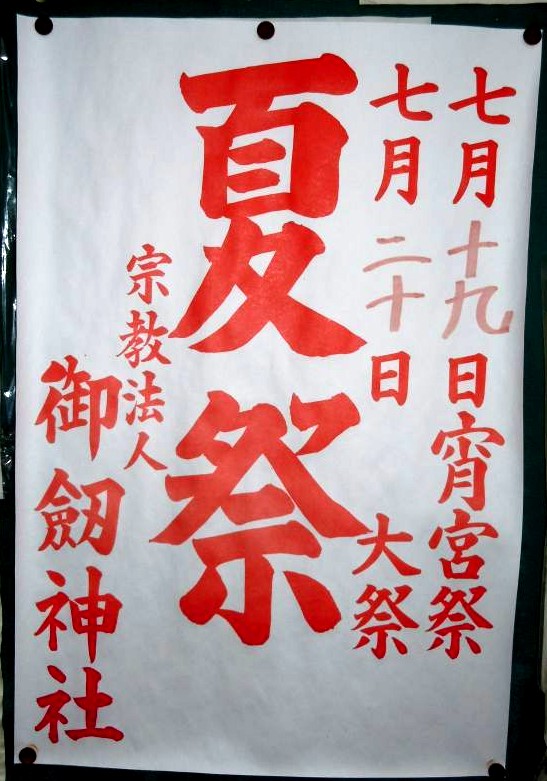 七月十九日宵宮祭
七月二十日大祭
夏祭
宗教法人
御劔神社